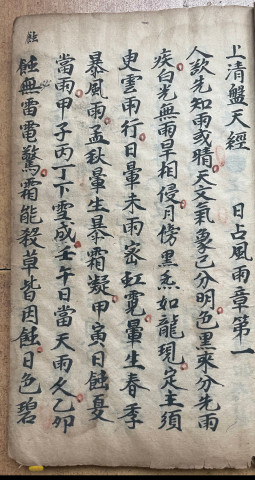 上清盤天經　日占風雨章第一
人欲先知雨或晴天文氣象已分明色黑來分先雨
疾白光無雨旱相侵月傍黑炁如龍現定主須
臾雲雨行日暈未雨密虹霓暈生春季
暴風雨孟秋暈生暴霜凝甲寅日蝕憂
當雨甲子丙丁下雪成壬午日當天雨久乙卯
蝕無雷電驚霜能殺草皆因蝕日色碧
蝕